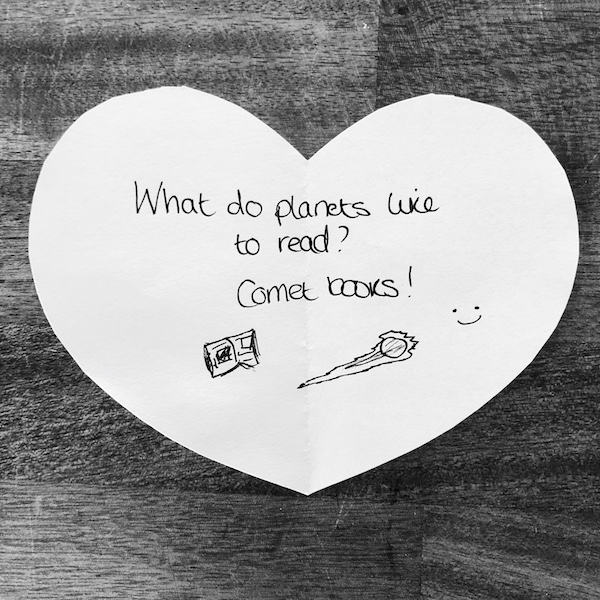 What do planets like
to read?
Comet books!